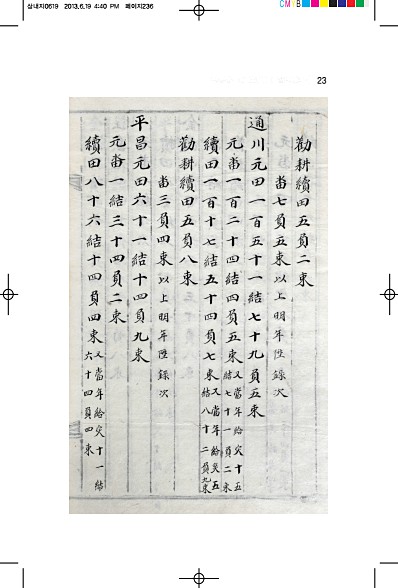 삼내지0619 2013.6.19 4:40 PM 페이지236
CMYB
23
勸耕續田五負二束
畓七負五束以上明年陞錄次
通川元田一百五十一結七十九負五束
元畓一百二十四結四負五束又當年給灾十五結七十一負二束
續田一百十七結五十四負七束又當年給灾五結八十二負九束
勸耕續田五負八束
畓三負四束以上明年陞錄次
平昌元田六十一結十四負九束
元畓一結三十四負二束
續田八十六結十四負四束又當年給灾十一結六十四負四束